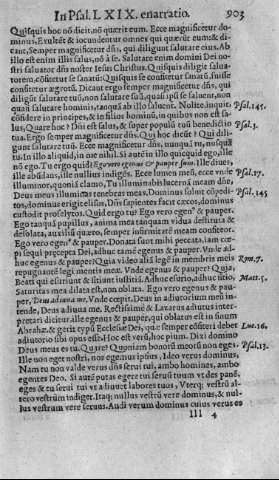 In Psal. LXIX. enarratio. 903
Quisquis hoc nō dicit, nō quærit eum. Ecce magnificetur do
minus, Exultēt & iocundentur omnes qui quærūt eum, & di-
cant, Semper magnificetur dn̄s, qui diligunt salutare eius. Ab
illo est enim illis salus, nō à se. Salutare enim domini Dei no-
stri saluator dn̄s noster Iesus Christus. Quisquis diligit salua-
torem, cōfitetur se sanatū: Quisquis se confitetur sanatū, fuisse
confitetur ægrotū. Dicant ergo semper magnificetur dn̄s, qui
diligūt salutare tuū, non salutare suū, quasi ipsi se saluent, non
quasi salutare hominis, tanquā ab illo saluent. Nolite, inquit, Psal. 145.
cōfidere in principes, & in filios hominū, in quibus non est sa-
lus, Quare hoc? Dn̄i est salus, & super populū tuū benedictio Psal. 3.
tua. Ergo semper magnificetur dn̄s. Qui hoc dicūt? Qui dili-
gunt salutare tuū. Ecce magnificetur dn̄s, nunquā tu, nusquā
tu. In illo aliquid, in me nihil. Si autē in illo quicquid ego, ille
nō ego. Tu ergo quid? Ego verò egenus & pauper sum. Ille diues,
ille abūdans, ille nullius indigēs. Ecce lumen meū, ecce vnde Psal. 17.
illuminor, quoniā clamo, Tu illuminabis lucernā meam dn̄e,
Deus meus illuminas tenebras meas. Dominus soluit cōpedi- Psal. 145
tos, dominus erigit elisos, Dn̄s sapientes facit cæcos, dominus
custodit proselytos. Quid ergo tu? Ego vero egenꝰ & pauper.
Ego tanquā pupillus, anima mea tanquam vidua destituta &
desolata, auxiliū quæro, semper infirmitatē meam confiteor.
Ego vero egenꝰ & pauper. Donata sunt mihi peccata, iam cœ-
pi sequi præcepta Dei, adhuc tamē egenus & pauper. Vnde ad-
huc egenus & pauper? Quia video aliā legē in membris meis Rom. 7.
repugnantē legi mentis meæ. Vnde egenus & pauper? Quia
Beati qui esuriunt & sitiunt iustitiā. Adhuc esurio, adhuc sitio. Matt. 5.
Saturitas mea dilata est, non ablata. Ego vero egenus & pau-
per, Deus adiuua me. Vnde cœpit. Deus in adiutorium meū in-
tende, Deus adiuua me. Rectissimè & Lazarus adiutus inter-
pretari dicitur, ille egenus & pauper, qui oblatus est in sinum
Abrahæ, & gerit typū Ecclesiæ Dei, quæ semper cōfiteri debet Luc. 16.
adiutorio sibi opus esse. Hoc est verū, hoc pium. Dixi domino
Deus meus es tu. Quare? Quoniam bonorū meorū non eges. Psal. 15.
Ille non eget nostri, nos egemus ipsius, Ideo verus dominus,
Nam tu non valde verus dn̄s serui tui, ambo homines, ambo
egentes Deo. Si autē putas egere tui seruū tuum vt des panē,
eges & tu serui tui vt adiuuet labores tuos, Vterq; vestrū al-
tero vestrūm indiget. Itaq; nullus vestrū vere dominus, & nul-
lus vestrum vere seruus. Audi verum dominum cuius verus es
lll 4